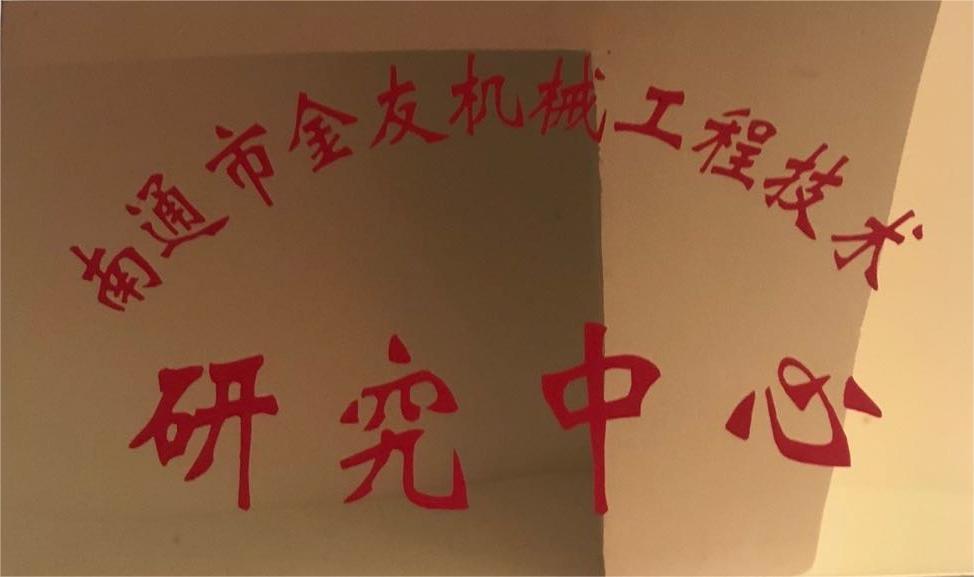 南通市金友机械工程技术
研究中心